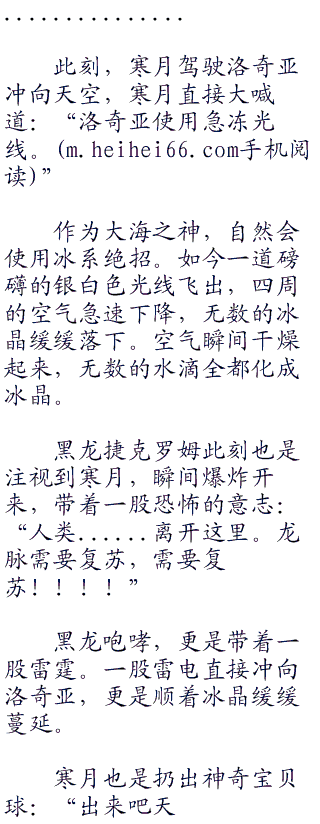 ...............
此刻，寒月驾驶洛奇亚
冲向天空，寒月直接大喊
道：“洛奇亚使用急冻光
线。(m.heihei66.com手机阅
读)”
作为大海之神，自然会
使用冰系绝招。如今一道磅
礴的银白色光线飞出，四周
的空气急速下降，无数的冰
晶缓缓落下。空气瞬间干燥
起来，无数的水滴全都化成
冰晶。
黑龙捷克罗姆此刻也是
注视到寒月，瞬间爆炸开
来，带着一股恐怖的意志：
“人类......离开这里。龙
脉需要复苏，需要复
苏！！！！”
黑龙咆哮，更是带着一
股雷霆。一股雷电直接冲向
洛奇亚，更是顺着冰晶缓缓
蔓延。
寒月也是扔出神奇宝贝
球：“出来吧天